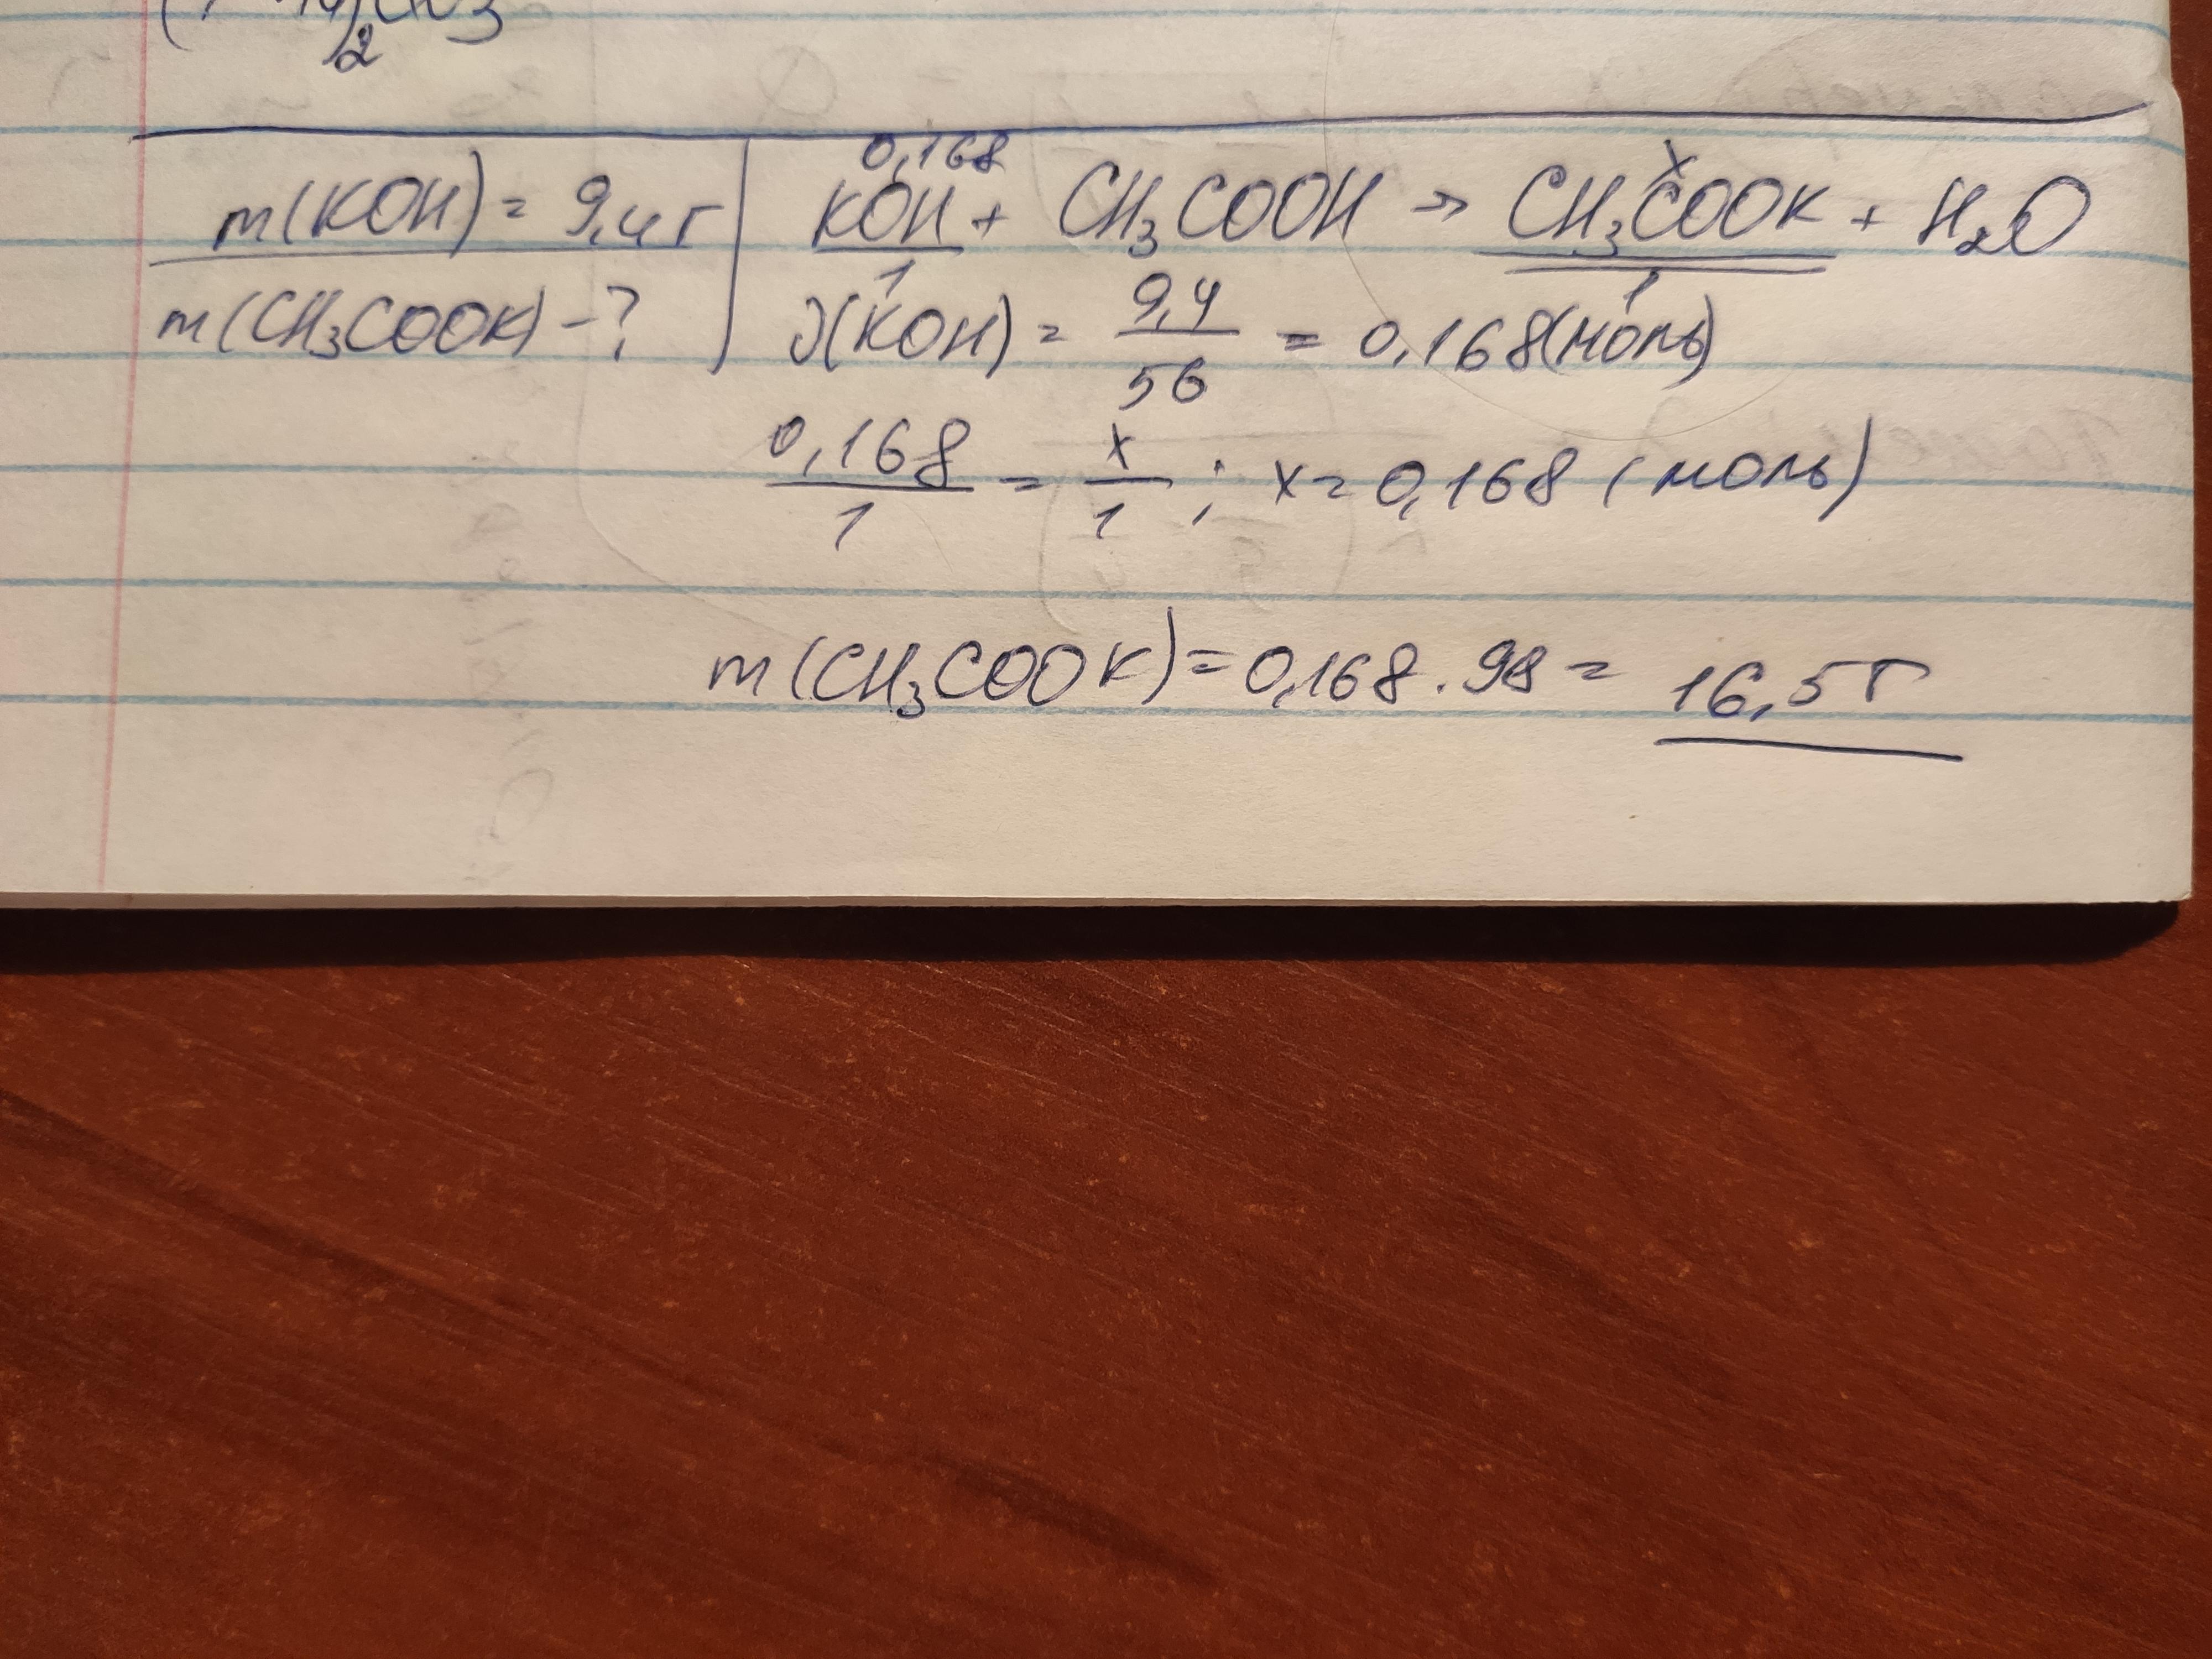 m(KOH) = 9,4г
m(CH₃COOK) - ?
0,168 x
KOH + CH₃COOH → CH₃COOK + H₂O
1 1
ν(KOH) = 9,4/56 = 0,168(моль)
0,168/1 = x/1 ; x = 0,168 (моль)
m(CH₃COOK) = 0,168 · 98 = 16,5г